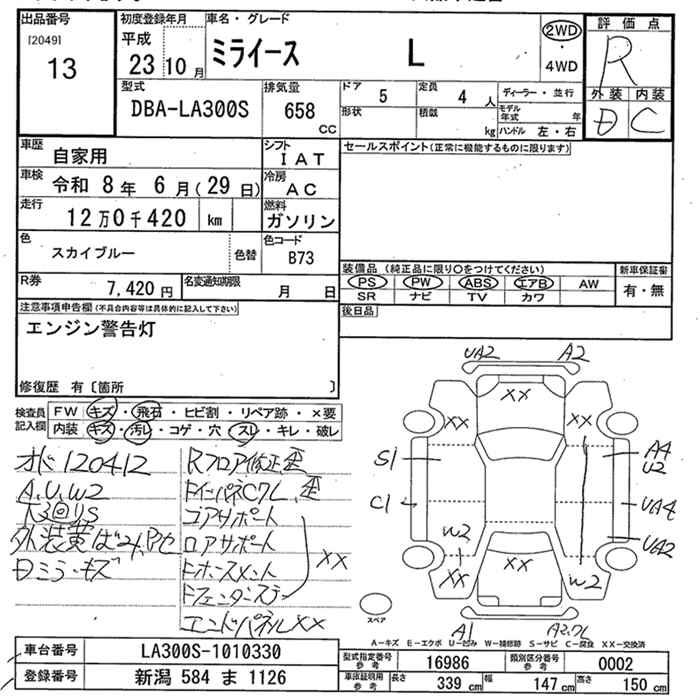 出品番号
[2049]
13
初度登録年月
平成
23 10 月
車名・グレード
ミライース L
2WD
・
4WD
評価点
R
外装 内装
D C
型式
DBA-LA300S
排気量
658
CC
ドア 5
定員 4 人
ディーラー・並行
形状
積載 kg
モデル年式 年
ハンドル 左・右
車歴
自家用
シフト
IAT
セールスポイント(正常に機能するものに限ります)
車検
令和 8年 6月(29日)
冷房
AC
走行
12万0千420 km
燃料
ガソリン
色
スカイブルー
色替
色コード
B73
R券
7,420円
名変通知期限
月 日
装備品 (純正品に限り○をつけてください)
新車保証書
PS PW ABS エアB AW
有・無
SR ナビ TV カワ
後日品
注意事項申告欄(不具合内容等は具体的に記入して下さい)
エンジン警告灯
修復歴 有〔箇所 〕
検査員
記入欄
FW キズ・飛石・ヒビ割・リペア跡・×要
内装 キズ・汚レ・コゲ・穴・スレ・キレ・破レ
オド120412
A,U,W2
下3回りS
Dミラーキズ
Rフロア修正歪
ドインパネCクL,歪
コアサポート
ロアサポート
エンドパネルXX
XX
UA2
A2
XX
XX
XX
S1
A4
U2
C1
UA4
UA2
W2
XX
XX
W2
A1
スペア
A－キズ E－エクボ U－凹み W－補修跡 S－サビ C－腐食 XX－交換済
車台番号
LA300S-1010330
登録番号
新潟 584 ま 1126
型式指定番号
参考
16986
類別区分番号
参考
0002
車庫証明用
参考
長さ 339 cm
幅 147 cm
高さ 150 cm